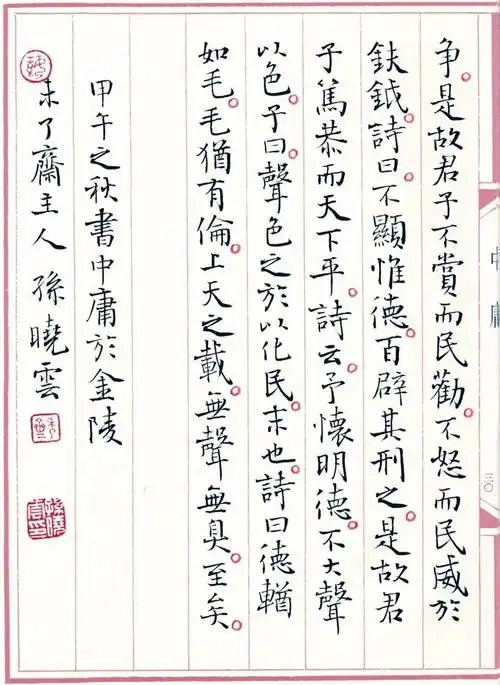 争。是故君子不賞而民勸。不怒而民威於
鈇鉞。詩曰。不顯惟德。百辟其刑之。是故君
子篤恭而天下平。詩云。予懷明德。不大聲
以色。子曰。聲色之於以化民。末也。詩曰。德輶
如毛。毛猶有倫。上天之載。無聲無臭。至矣。
甲午之秋書中庸於金陵
未了齋主人 孫曉雲
中庸
三〇